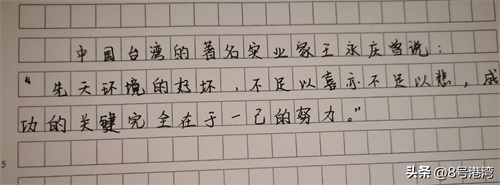 中国台湾的著名实业家王永庆曾说：
“先天环境的好坏，不足以喜亦不足以悲，成
功的关键完全在于一己的努力。”
5
头条@8号港湾